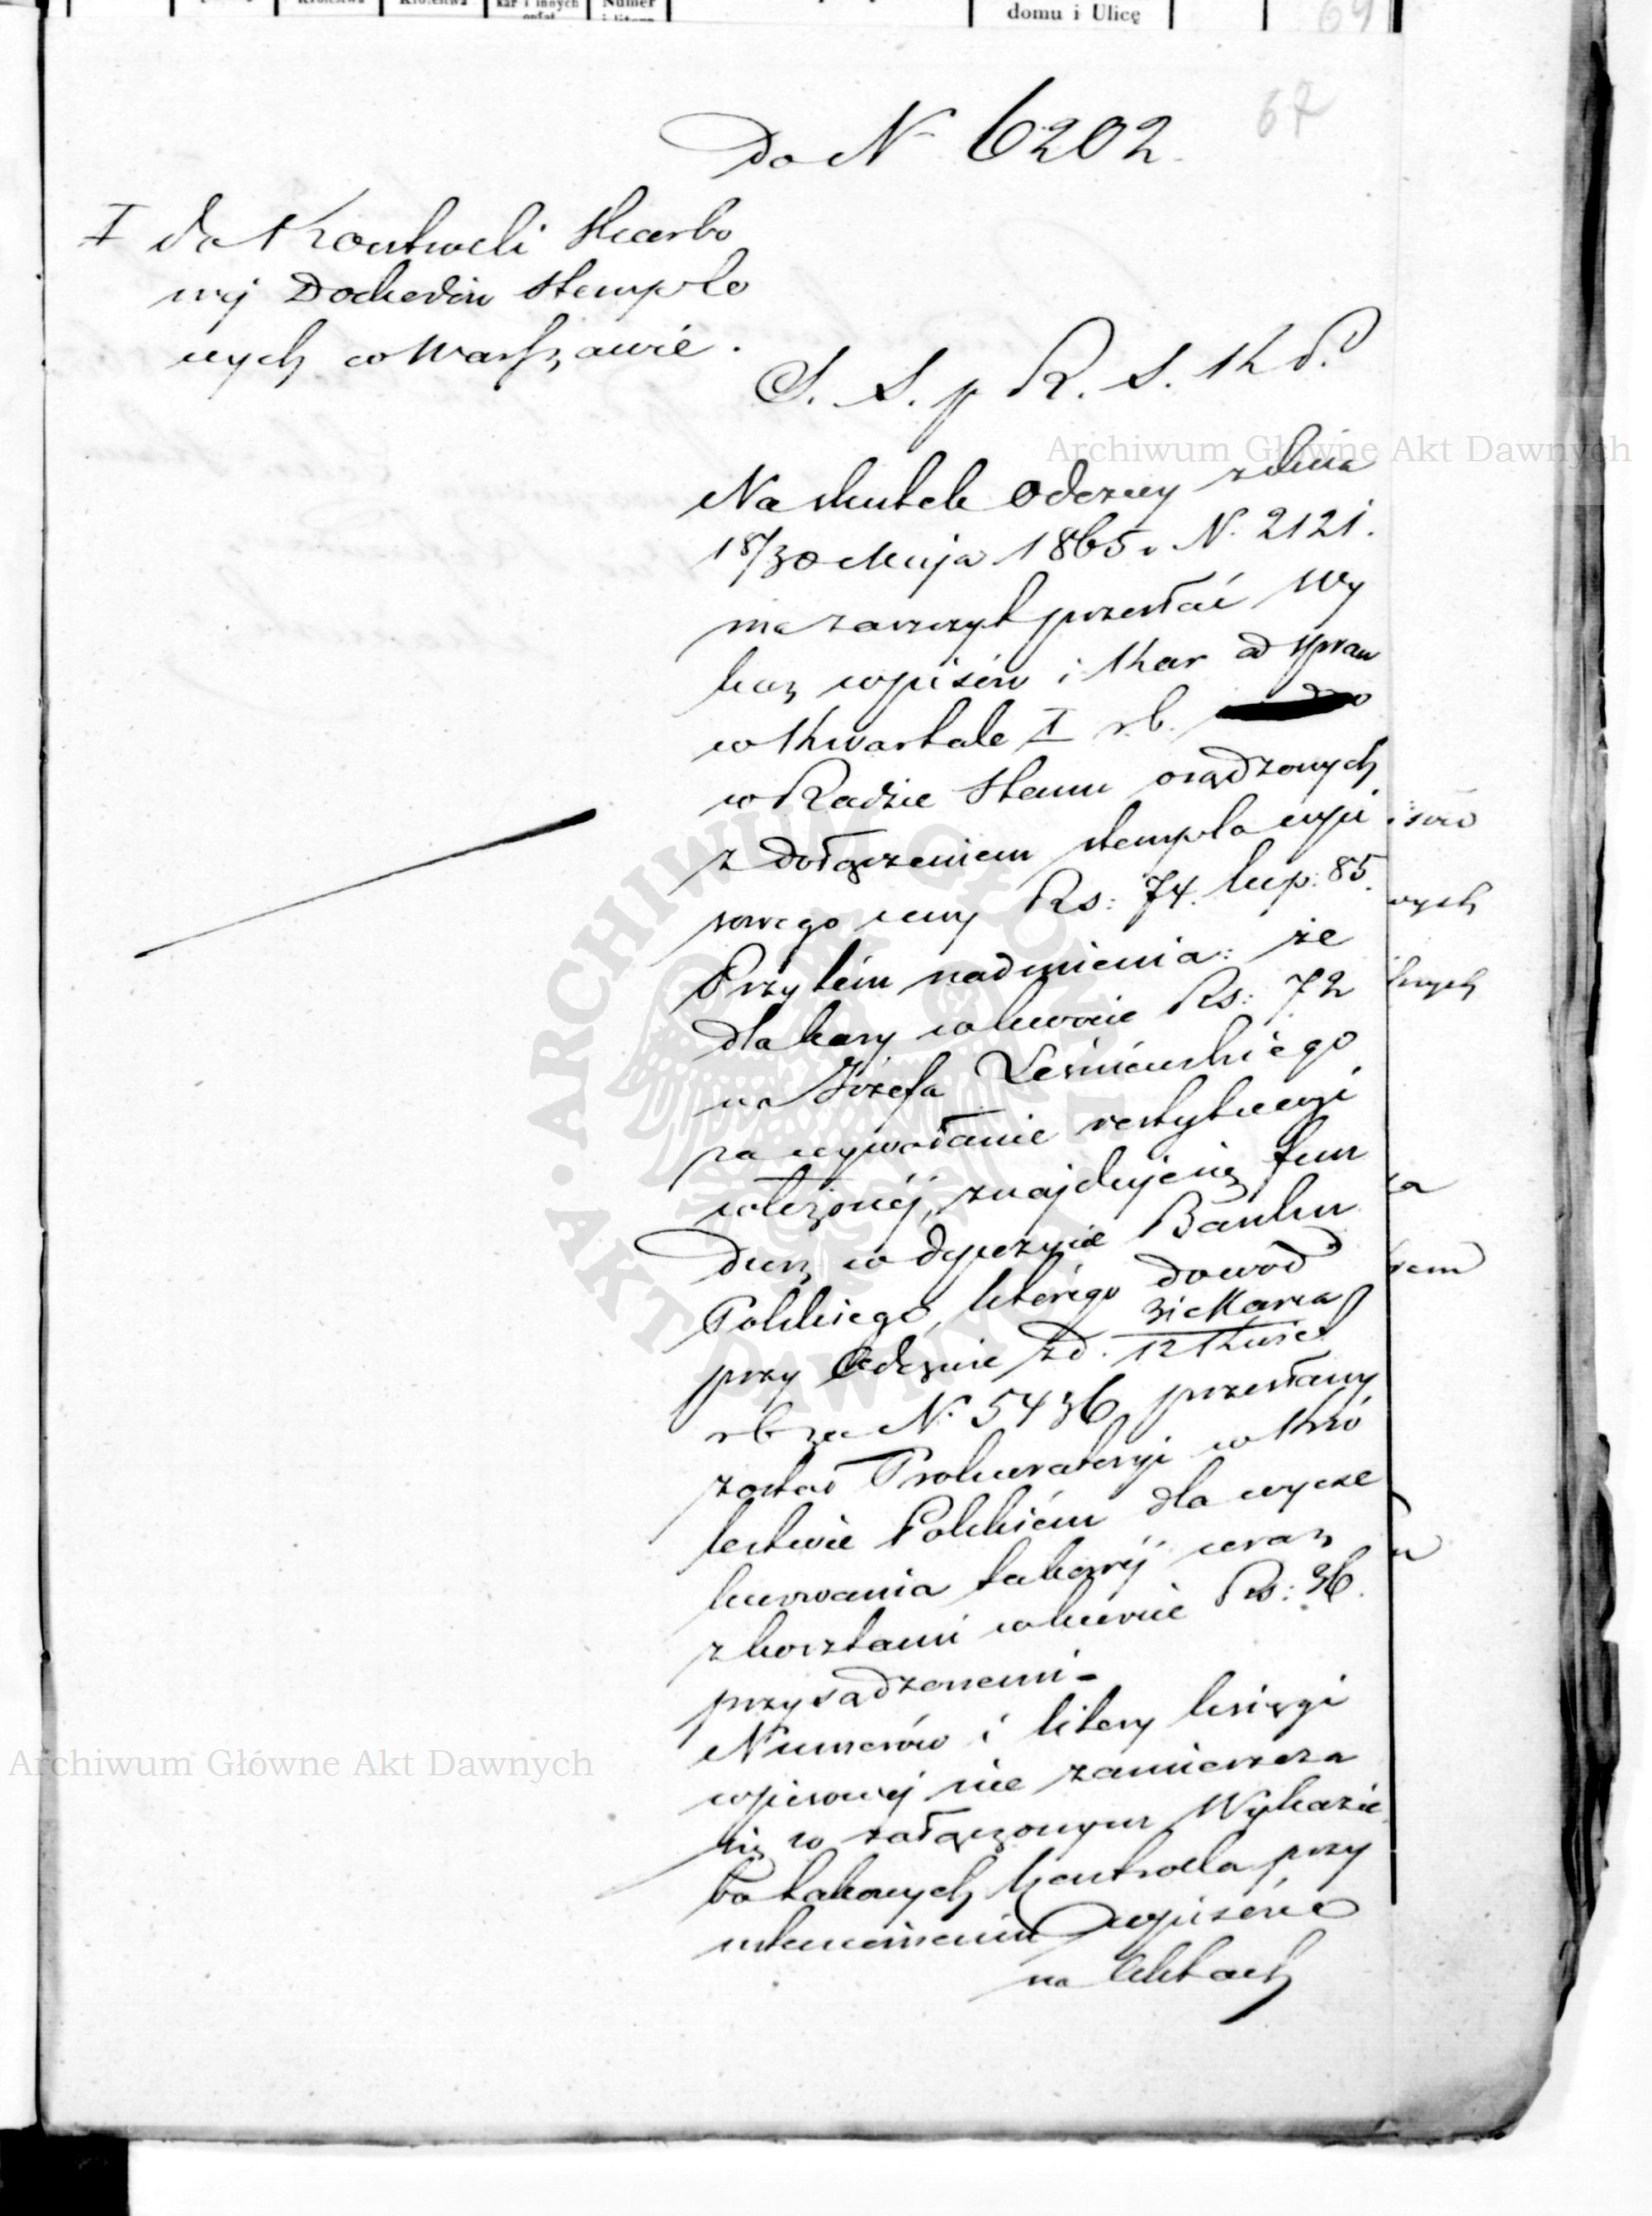 Królestwa
Królestwa
kar i innych
opłat
Numer
i litera
domu i Ulicę
69
67
Do N 6202.
I do Kontroli Skarbo
wéj Dochodów Stemplo
wych w Warszawie.
S. S. p R. S. K P.
Na skutek Odezwy z dnia
18/30 Maja 1865 r N. 2121.
ma zaszczyt przesłać Wy
kaz wpisów i Kar od spraw
w Kwartale I r.b.
w Radzie Stanu osądzonych
z dołączeniem stempla wpi
sowego ceny Rs: 74. kop: 85.
Przytém nadmienia: że
dla kary w kwocie Rs: 72
na Józefa Leśniewskiego
za wywołanie restytucyi
włożonéj, znajduje się fun
dusz w depozycie Banku
Polskiego, którego dowód
przy Odezwie z d. 31 Marca / 12 Kwiet
rb za N. 5436 przesłany
został Prokuratoryi w Kró
lestwie Polskiém dla wyeze
kwowania takowéj wraz
z kosztami w kwocie Rs: 36.
przysądzonemi -
Numerów i litery księgi
wpisowéj nie zamieszcza
się w załączonym Wykazie
bo takowych Kontrolla przy
ustanowieniu wpisów
na Aktach
isów
wych
nych
za
Archiwum Główne Akt Dawnych
Archiwum Główne Akt Dawnych
· ARCHIWUM GŁÓWNE · AKT DAWNYCH